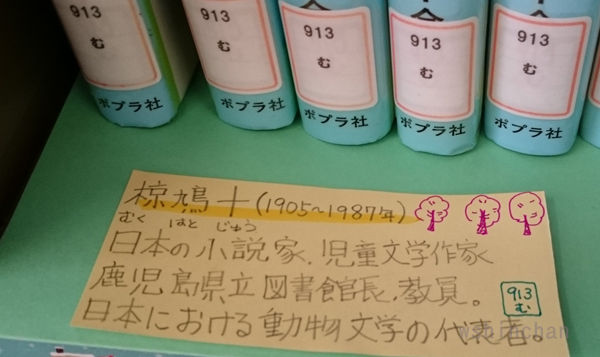 913
む
ポプラ社
913
む
ポプラ社
913
む
ポプラ社
913
む
ポプラ社
913
む
ポプラ社
椋鳩十(1905~1987年)
むく はと じゅう
日本の小説家.児童文学作家
鹿児島県立図書館長.教員。
日本における動物文学の代表者。
913
む